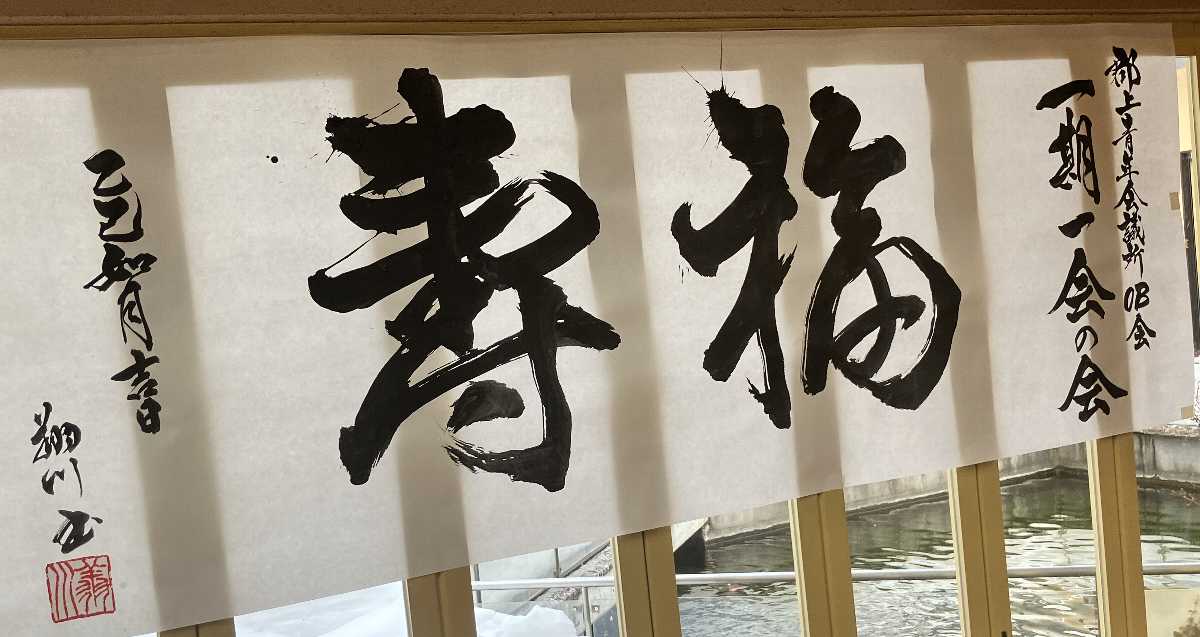 郡上青年会議所OB会
一期一会の会
福寿
乙巳如月吉日
翔川書